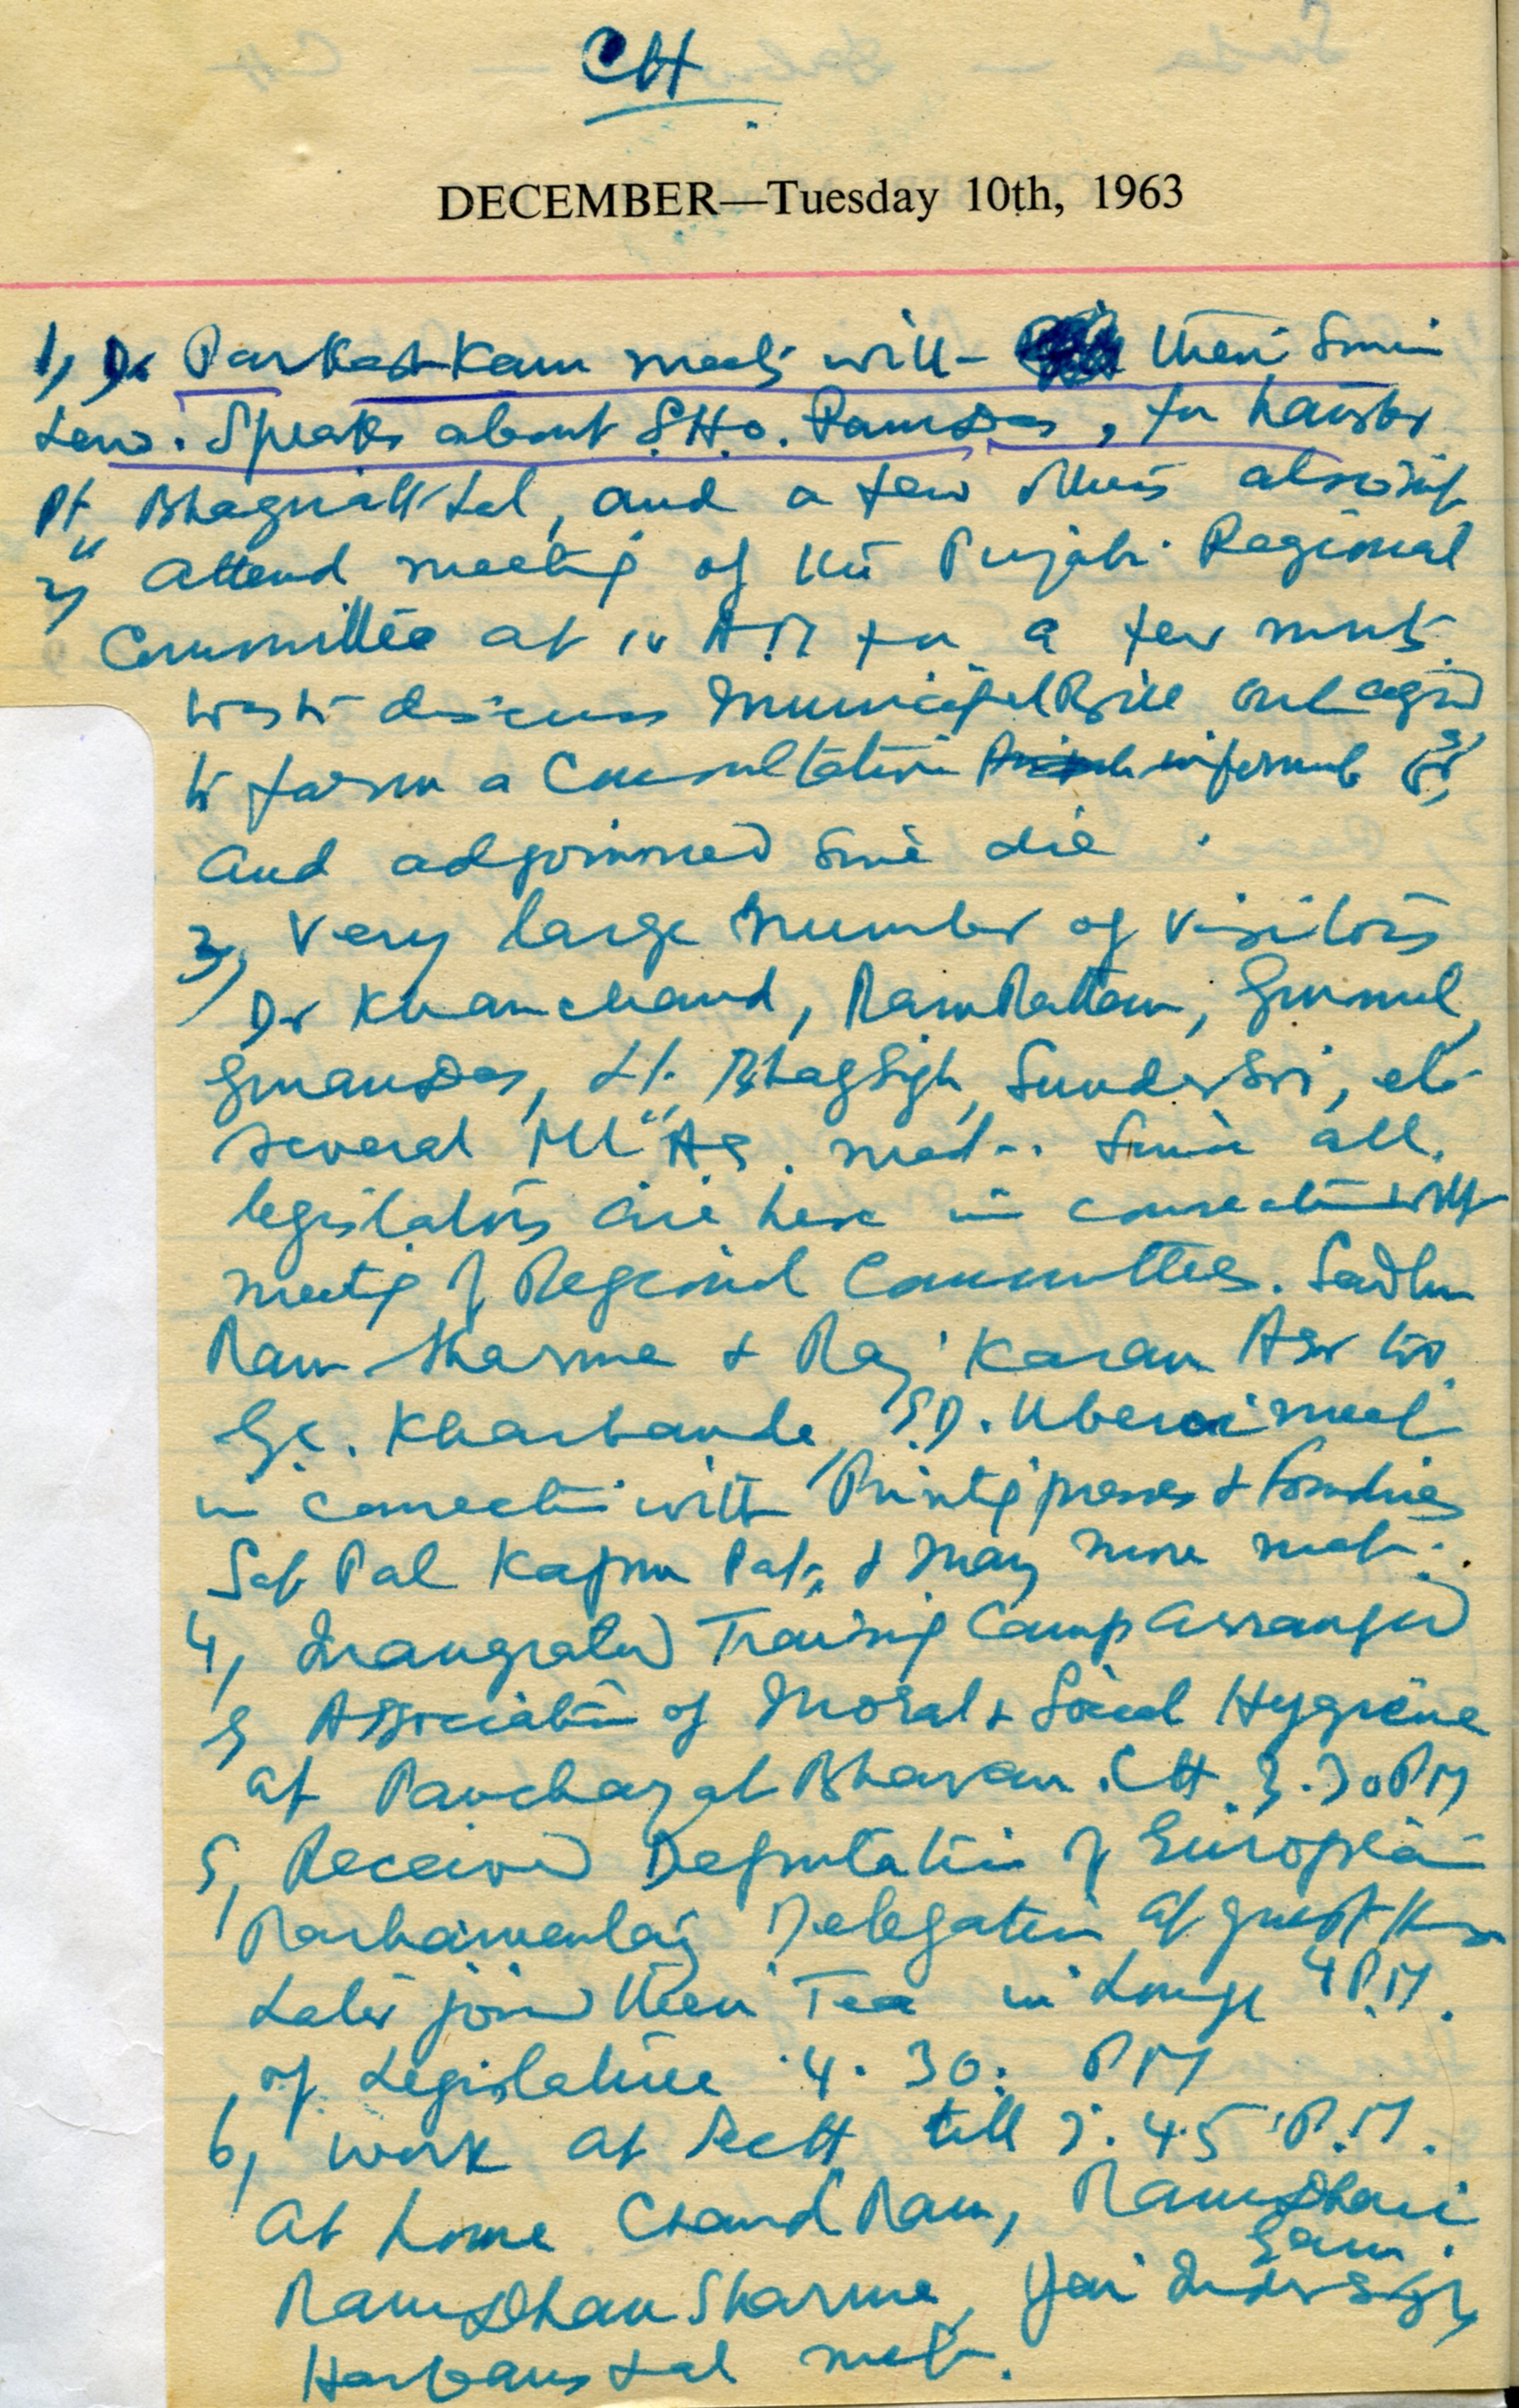 CH
DECEMBER—Tuesday 10th, 1963
1, Dr Parkash Kaur meets with their Son in
Law. Speaks about S.H.O. Ram Das, for transfer
Pt. Bhagwath Lal, and a few others also met
2, Attend meeting of the Punjabi Regional
Committee at 10 A.M for a few mints.
was to discuss Municipal Bill but agreed
to form a Consultative informal
and adjoinned Sine die.
3, Very large Number of visitors
Dr Khanchand, Ram Rattan, Gurmul,
Gurandas, Lt. Bhag Sigh, Sunder Sri, etc
several MLAs. met. Since all.
legislators are here in connection with
meetig of Regional Committees. Sadhu
Ram Sharma & Raj Karan Asr too
G.C. Kharbanda, S.D. Uberoi meet
in connection with Printig presses & Foundries
Sat Pal Kapur Pat. & Many more met.
4, Inaugrated Trainig Camp arranged
by Association of Moral & Social Hygiene
at Panchayat Bhavan. CH. 3.30 PM
5, Received Deputation of European
Parliamentary Delegation at guest House
Later joined their Tea in Lounge 4 P.M.
of Legislature 4.30. PM
6, work at Sectt till 7.45 P.M.
at home Chand Ram, Ram Dhari
Gaur.
Ram Dhan Sharma, Yari Inder Sigh,
Harbans Lal met.